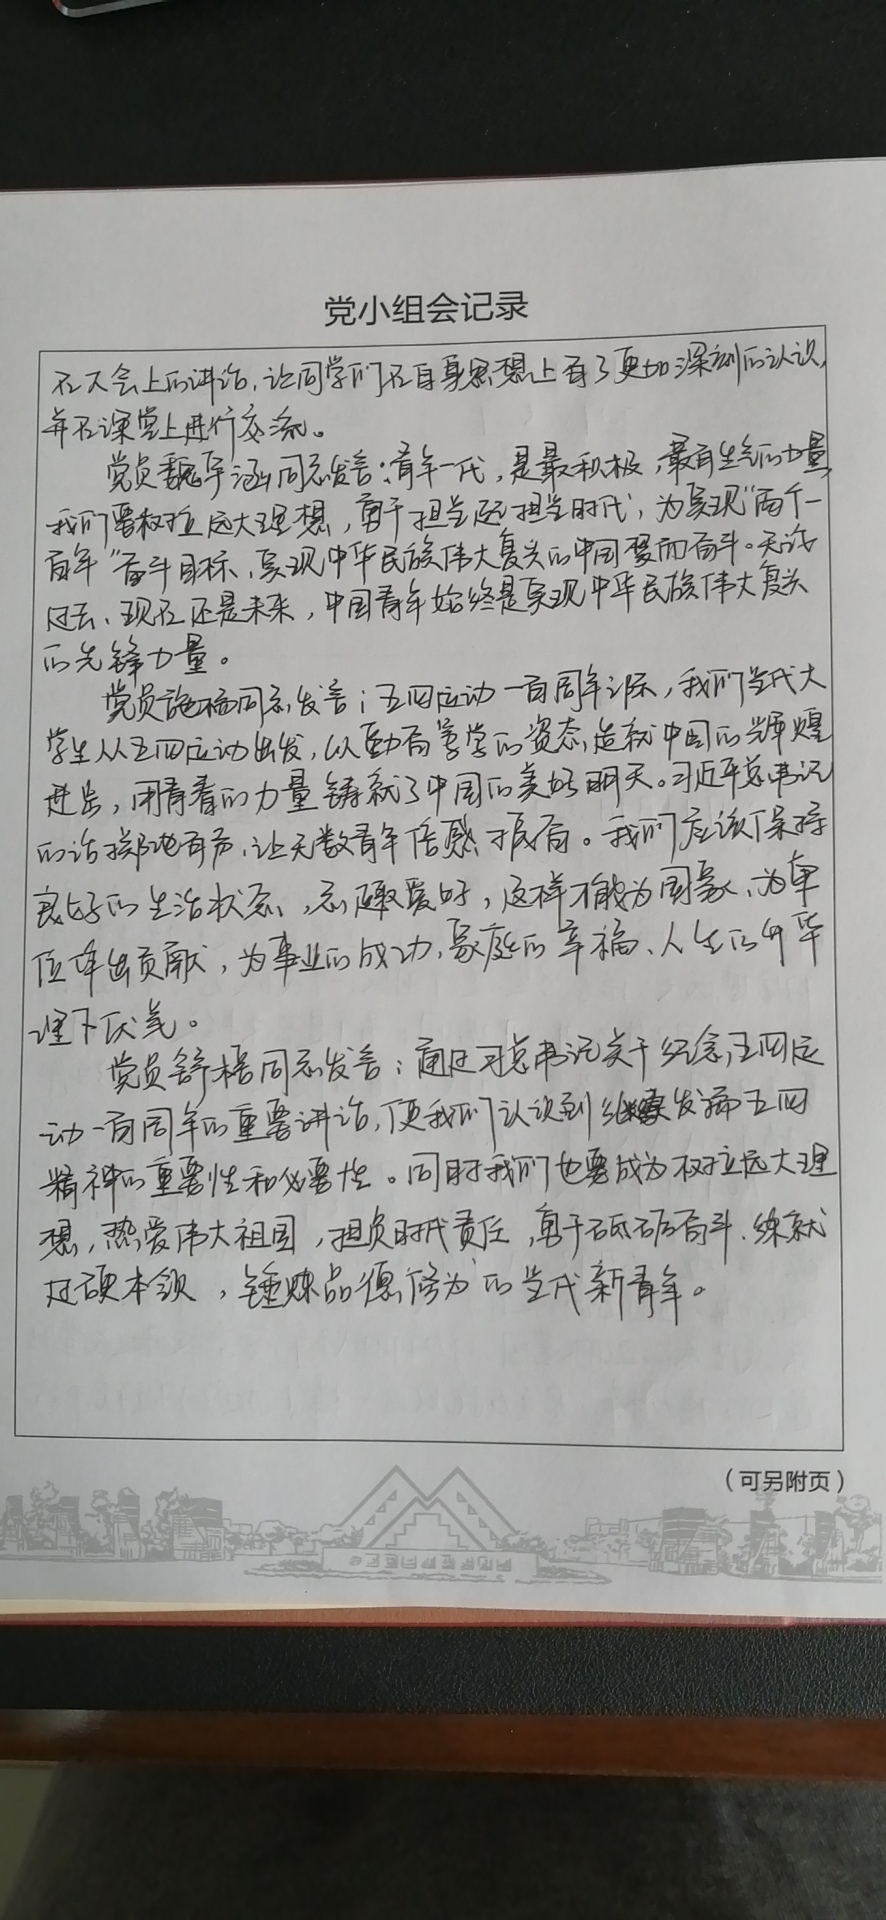 党小组会记录
在大会上的讲话，让同学们在自身思想上有了更加深刻的认识，
并在课堂上进行交流。
党员魏宇涵同志发言：青年一代，是最积极，最有生气的力量，
我们要树立远大理想，勇于担当时代，为实现“两个一
百年”奋斗目标、实现中华民族伟大复兴的中国梦而奋斗。无论
过去、现在还是未来，中国青年始终是实现中华民族伟大复兴
的先锋力量。
党员施杨同志发言：五四运动一百周年之际，我们当代大
学生从五四运动出发，以勤奋笃学的资态，造就中国的辉煌
进步，用青春的力量铸就了中国的美好明天。习近平总书记
的话掷地有声，让无数青年倍感振奋。我们应该保持
良好的生活状态、志趣爱好，这样才能为国家、为单
位作出贡献，为事业的成功、家庭的幸福、人生的升华
埋下伏笔。
党员舒楷同志发言：通过习总书记关于纪念五四运
动一百周年的重要讲话，使我们认识到继续发扬五四
精神的重要性和必要性。同时我们也要成为“树立远大理
想，热爱伟大祖国，担负时代责任，勇于砥砺奋斗，练就
过硬本领，锤炼品德修为”的当代新青年。
（可另附页）